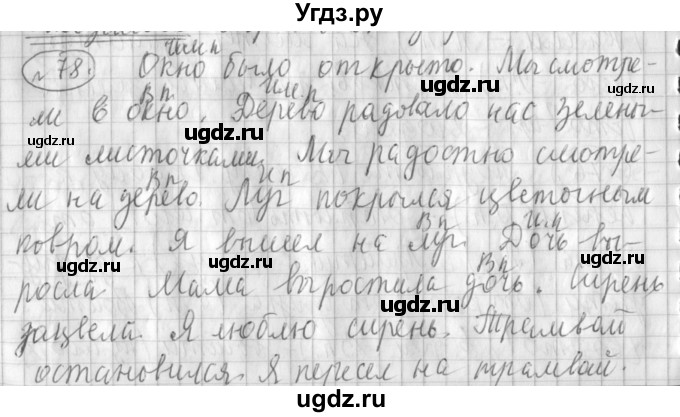 Угдз.ру
№78. Окно было открыто. Мы смотре-
Им п
ли в окно. Дерево радовало нас зелены-
В п Им п
ми листочками. Мы радостно смотре-
ли на дерево. Луг покрылся цветочным
В п И п
ковром. Я вышел на луг. Дочь вы-
В п И. п
росла. Мама выростила дочь. Сирень
В п
зацвела. Я люблю сирень. Трамвай
остановился. Я пересел на трамвай.
ugdz.ru
ugdz.ru
ugdz.ru
ugdz.ru
ugdz.ru
ugdz.ru
ugdz.ru
ugdz.ru
ugdz.ru
ugdz.ru
ugdz.ru
ugdz.ru
ugdz.ru